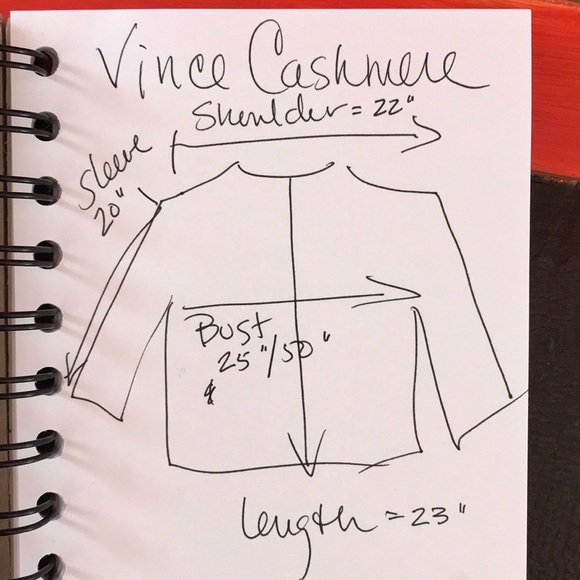 Vince Cashmere
Shoulder = 22"
Sleeve
20"
Bust
25"/50"
length = 23"